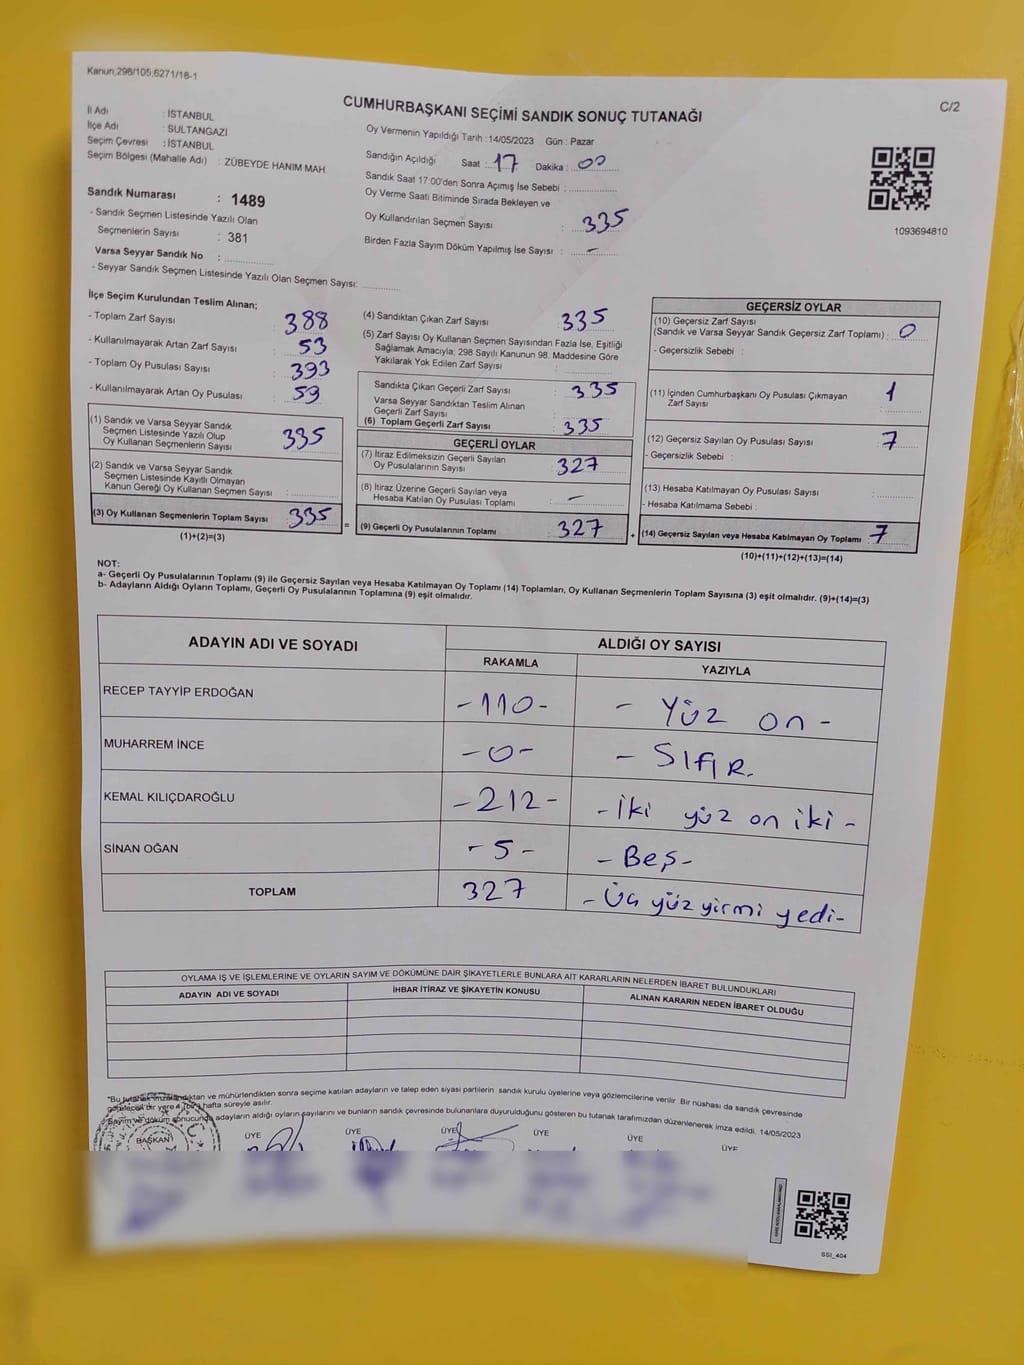 Kanun;298/105;6271/18-1
C/2
CUMHURBAŞKANI SEÇİMİ SANDIK SONUÇ TUTANAĞI
İl Adı : İSTANBUL
İlçe Adı : SULTANGAZİ
Seçim Çevresi : İSTANBUL
Seçim Bölgesi (Mahalle Adı) : ZÜBEYDE HANIM MAH
Oy Vermenin Yapıldığı Tarih :14/05/2023 Gün : Pazar
Sandığın Açıldığı Saat : 17 Dakika : 00
Sandık Saat 17:00'den Sonra Açımış İse Sebebi :
Oy Verme Saati Bitiminde Sırada Bekleyen ve
Oy Kullandırılan Seçmen Sayısı : 335
Birden Fazla Sayım Döküm Yapılmış İse Sayısı : –
1093694810
Sandık Numarası : 1489
- Sandık Seçmen Listesinde Yazılı Olan
Seçmenlerin Sayısı : 381
Varsa Seyyar Sandık No :
- Seyyar Sandık Seçmen Listesinde Yazılı Olan Seçmen Sayısı:
İlçe Seçim Kurulundan Teslim Alınan;
- Toplam Zarf Sayısı : 388
- Kullanılmayarak Artan Zarf Sayısı : 53
- Toplam Oy Pusulası Sayısı : 393
- Kullanılmayarak Artan Oy Pusulası : 59
(1) Sandık ve Varsa Seyyar Sandık
Seçmen Listesinde Yazılı Olup
Oy Kullanan Seçmenlerin Sayısı : 335
(2) Sandık ve Varsa Seyyar Sandık
Seçmen Listesinde Kayıtlı Olmayan
Kanun Gereği Oy Kullanan Seçmen Sayısı :
(3) Oy Kullanan Seçmenlerin Toplam Sayısı : 335
(1)+(2)=(3)
(4) Sandıktan Çıkan Zarf Sayısı : 335
(5) Zarf Sayısı Oy Kullanan Seçmen Sayısından Fazla İse, Eşitliği
Sağlamak Amacıyla; 298 Sayılı Kanunun 98. Maddesine Göre
Yakılarak Yok Edilen Zarf Sayısı :
Sandıkta Çıkan Geçerli Zarf Sayısı : 335
Varsa Seyyar Sandıktan Teslim Alınan
Geçerli Zarf Sayısı :
(6) Toplam Geçerli Zarf Sayısı : 335
GEÇERLİ OYLAR
(7) İtiraz Edilmeksizin Geçerli Sayılan
Oy Pusulalarının Sayısı : 327
(8) İtiraz Üzerine Geçerli Sayılan veya
Hesaba Katılan Oy Pusulası Toplamı : –
= (9) Geçerli Oy Pusulalarının Toplamı : 327
GEÇERSİZ OYLAR
(10) Geçersiz Zarf Sayısı
(Sandık ve Varsa Seyyar Sandık Geçersiz Zarf Toplamı) : 0
- Geçersizlik Sebebi :
(11) İçinden Cumhurbaşkanı Oy Pusulası Çıkmayan
Zarf Sayısı : 1
(12) Geçersiz Sayılan Oy Pusulası Sayısı : 7
- Geçersizlik Sebebi :
(13) Hesaba Katılmayan Oy Pusulası Sayısı :
- Hesaba Katılmama Sebebi :
+ (14) Geçersiz Sayılan veya Hesaba Katılmayan Oy Toplamı : 7
(10)+(11)+(12)+(13)=(14)
NOT:
a- Geçerli Oy Pusulalarının Toplamı (9) ile Geçersiz Sayılan veya Hesaba Katılmayan Oy Toplamı (14) Toplamları, Oy Kullanan Seçmenlerin Toplam Sayısına (3) eşit olmalıdır. (9)+(14)=(3)
b- Adayların Aldığı Oyların Toplamı, Geçerli Oy Pusulalarının Toplamına (9) eşit olmalıdır.
ADAYIN ADI VE SOYADI ALDIĞI OY SAYISI
RAKAMLA YAZIYLA
RECEP TAYYİP ERDOĞAN -110- - Yüz on -
MUHARREM İNCE -0- - SIFIR.
KEMAL KILIÇDAROĞLU -212- - İki yüz on iki -
SİNAN OĞAN -5- - Beş -
TOPLAM 327 - Üç yüz yirmi yedi -
OYLAMA İŞ VE İŞLEMLERİNE VE OYLARIN SAYIM VE DÖKÜMÜNE DAİR ŞİKAYETLERLE BUNLARA AİT KARARLARIN NELERDEN İBARET BULUNDUKLARI
ADAYIN ADI VE SOYADI İHBAR İTİRAZ VE ŞİKAYETİN KONUSU ALINAN KARARIN NEDEN İBARET OLDUĞU
*Bu tutanak imzalandıktan ve mühürlendikten sonra seçime katılan adayların ve talep eden siyasi partilerin sandık kurulu üyelerine veya gözlemcilerine verilir. Bir nüshası da sandık çevresinde
görülecek bir yere 1 (bir) hafta süreyle asılır.
Sayım ve döküm sonucunda adayların aldığı oyların sayılarını ve bunların sandık çevresinde bulunanlara duyurulduğunu gösteren bu tutanak tarafımızdan düzenlenerek imza edildi. 14/05/2023
BAŞKAN ÜYE ÜYE ÜYE ÜYE ÜYE ÜYE
SSI_404